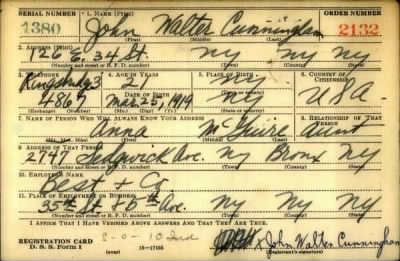 SERIAL NUMBER 1. NAME (Print) ORDER NUMBER
1380 John Walter Cunningham 2132
(First) (Middle) (Last)
2. ADDRESS (Print)
126 E. 34 St. NY NY NY
(Number and street or R. F. D. number) (Town) (County) (State)
3. TELEPHONE 4. AGE IN YEARS 5. PLACE OF BIRTH 6. COUNTRY OF CITIZENSHIP
Kingsbridge 3 21 NY
4864 DATE OF BIRTH Mar. 25, 1919 NY USA
(Exchange) (Number) (Mo.) (Day) (Yr.) (State or country)
7. NAME OF PERSON WHO WILL ALWAYS KNOW YOUR ADDRESS 8. RELATIONSHIP OF THAT PERSON
Anna McGuire Aunt
(Mr., Mrs., Miss) (First) (Middle) (Last)
9. ADDRESS OF THAT PERSON
2797 Sedgwick Ave. NY Bronx NY
(Number and street or R. F. D. number) (Town) (County) (State)
10. EMPLOYER'S NAME
Best + Co
11. PLACE OF EMPLOYMENT OR BUSINESS
35th St & 5th Ave. NY NY NY
(Number and street or R. F. D. number) (Town) (County) (State)
I AFFIRM THAT I HAVE VERIFIED ABOVE ANSWERS AND THAT THEY ARE TRUE.
REGISTRATION CARD
D. S. S. FORM 1 (over) 16—17105 John Walter Cunningham
(Registrant's signature)